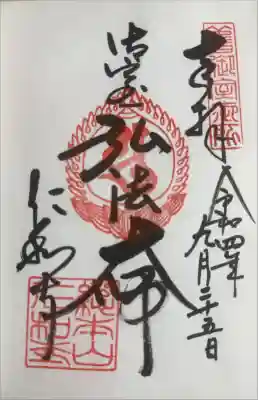 奉拝
令和四年
九月二十五日
弘法大師
仁和寺
総本山
仁和寺